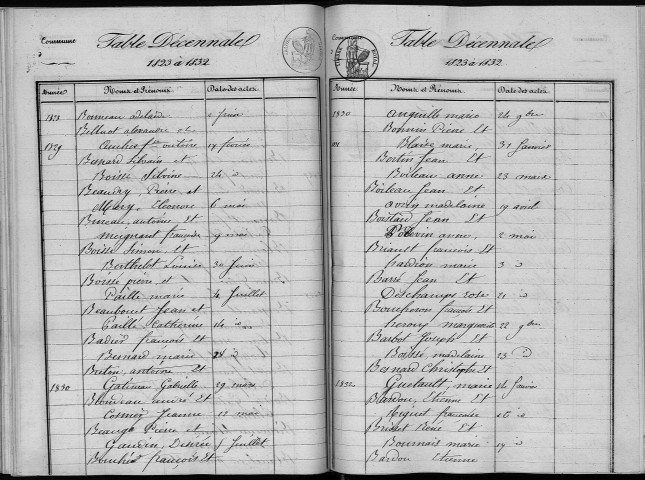 Commune
Table Décennale
1823 à 1832
Année Noms et Prénoms Dates des actes
1828 Bonneau adelaïde 2 Juin
Belluot alexandre et
1829 14 février
Besnard Silvain et
Boisse Silvine 24 d
Beaudry Pierre et
Mery, Eleonore 6 mai
Bureau, antoine Et
meignant françoise 9 mai
Boisse Simon Et
Berthelot Louise 30 Juin
Boisse pierre et
Paille marie 4 Juillet
Beaubouet Jean et
Paille Catherine 14 d
Badier francois Et
Besnard marie 28 d
Breton, antoine Et
1830 Gatineau Gabrielle 29 mars
Blondeau andré Et
Cosney Jeanne 12 mai
Beaugé Pierre et
Gaudin, Desirée 5 Juillet
Bouché françois Et
Commune
Table Décennale
1823 à 1832
Année Noms et Prénoms Dates des actes
1830 anguille marie 24 9bre
Bonnin Pierre Et
Blaise marie 31 Janvier
Bertin Jean Et
Boileau anne 23 mars
Boileau Jean Et
avrin madelaine 19 avril
Boistard Jean Et
Potevin anne, 2 mai
Briault francois Et
Gardion marie 3 d
Barré Jean Et
Deschamps rose 21 d
françois Et
marguerite 22 9bre
Barbot Joseph Et
Boissé madelaine 23 d
Besnard Christophe Et
1832 Guetault, marie 14 Janvier
Bardou, Etienne Et
Miguet francoise 16 d
Brisset René Et
Bournais marie 19 d
Bardou Etienne